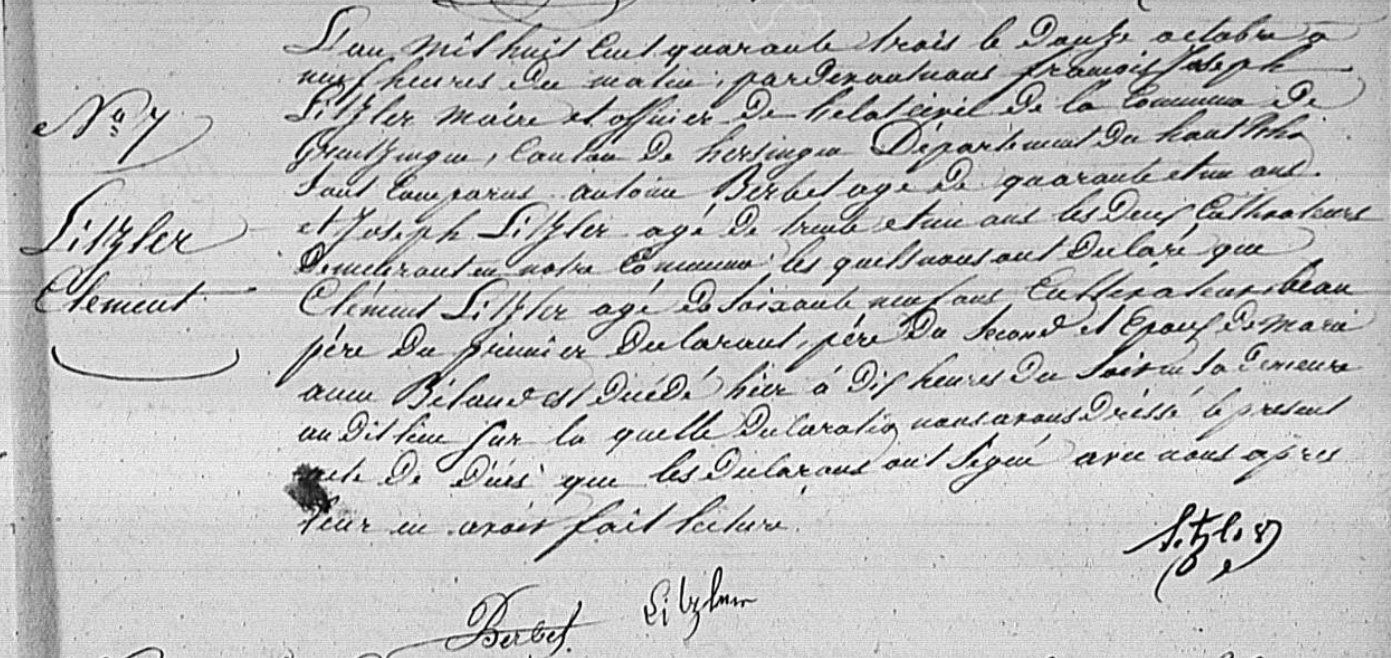 L'an mil huit cent quarante trois le Douze octobre à
neuf heures du matin, pardevant nous françois Joseph
Litzler maire et officier de l'état civil de la Commune de
Grentzingue, Canton de hirsingue Département du haut Rhin
Sont Comparus antoine Berbet agé de quarante et un ans
et Joseph Litzler agé de trente et un ans les Deux Cultivateurs
Demeurant en notre Commune les quels nous ont Déclaré que
N° 7
Litzler
Clément
Clément Litzler agé de Soixante neuf ans Cultivateur, beau
père Du premier Déclarant, père Du Second et Epoux de Marie
anne est Décédé hier à Dix heures Du Soir en Sa Demeure
au Dit lieu Sur la quelle Declaration nous avons Dréssé le présent
acte De Décès que les Déclarans ont Signé avec nous apres
leur en avoir fait lecture.
Litzler
Berbet Litzler